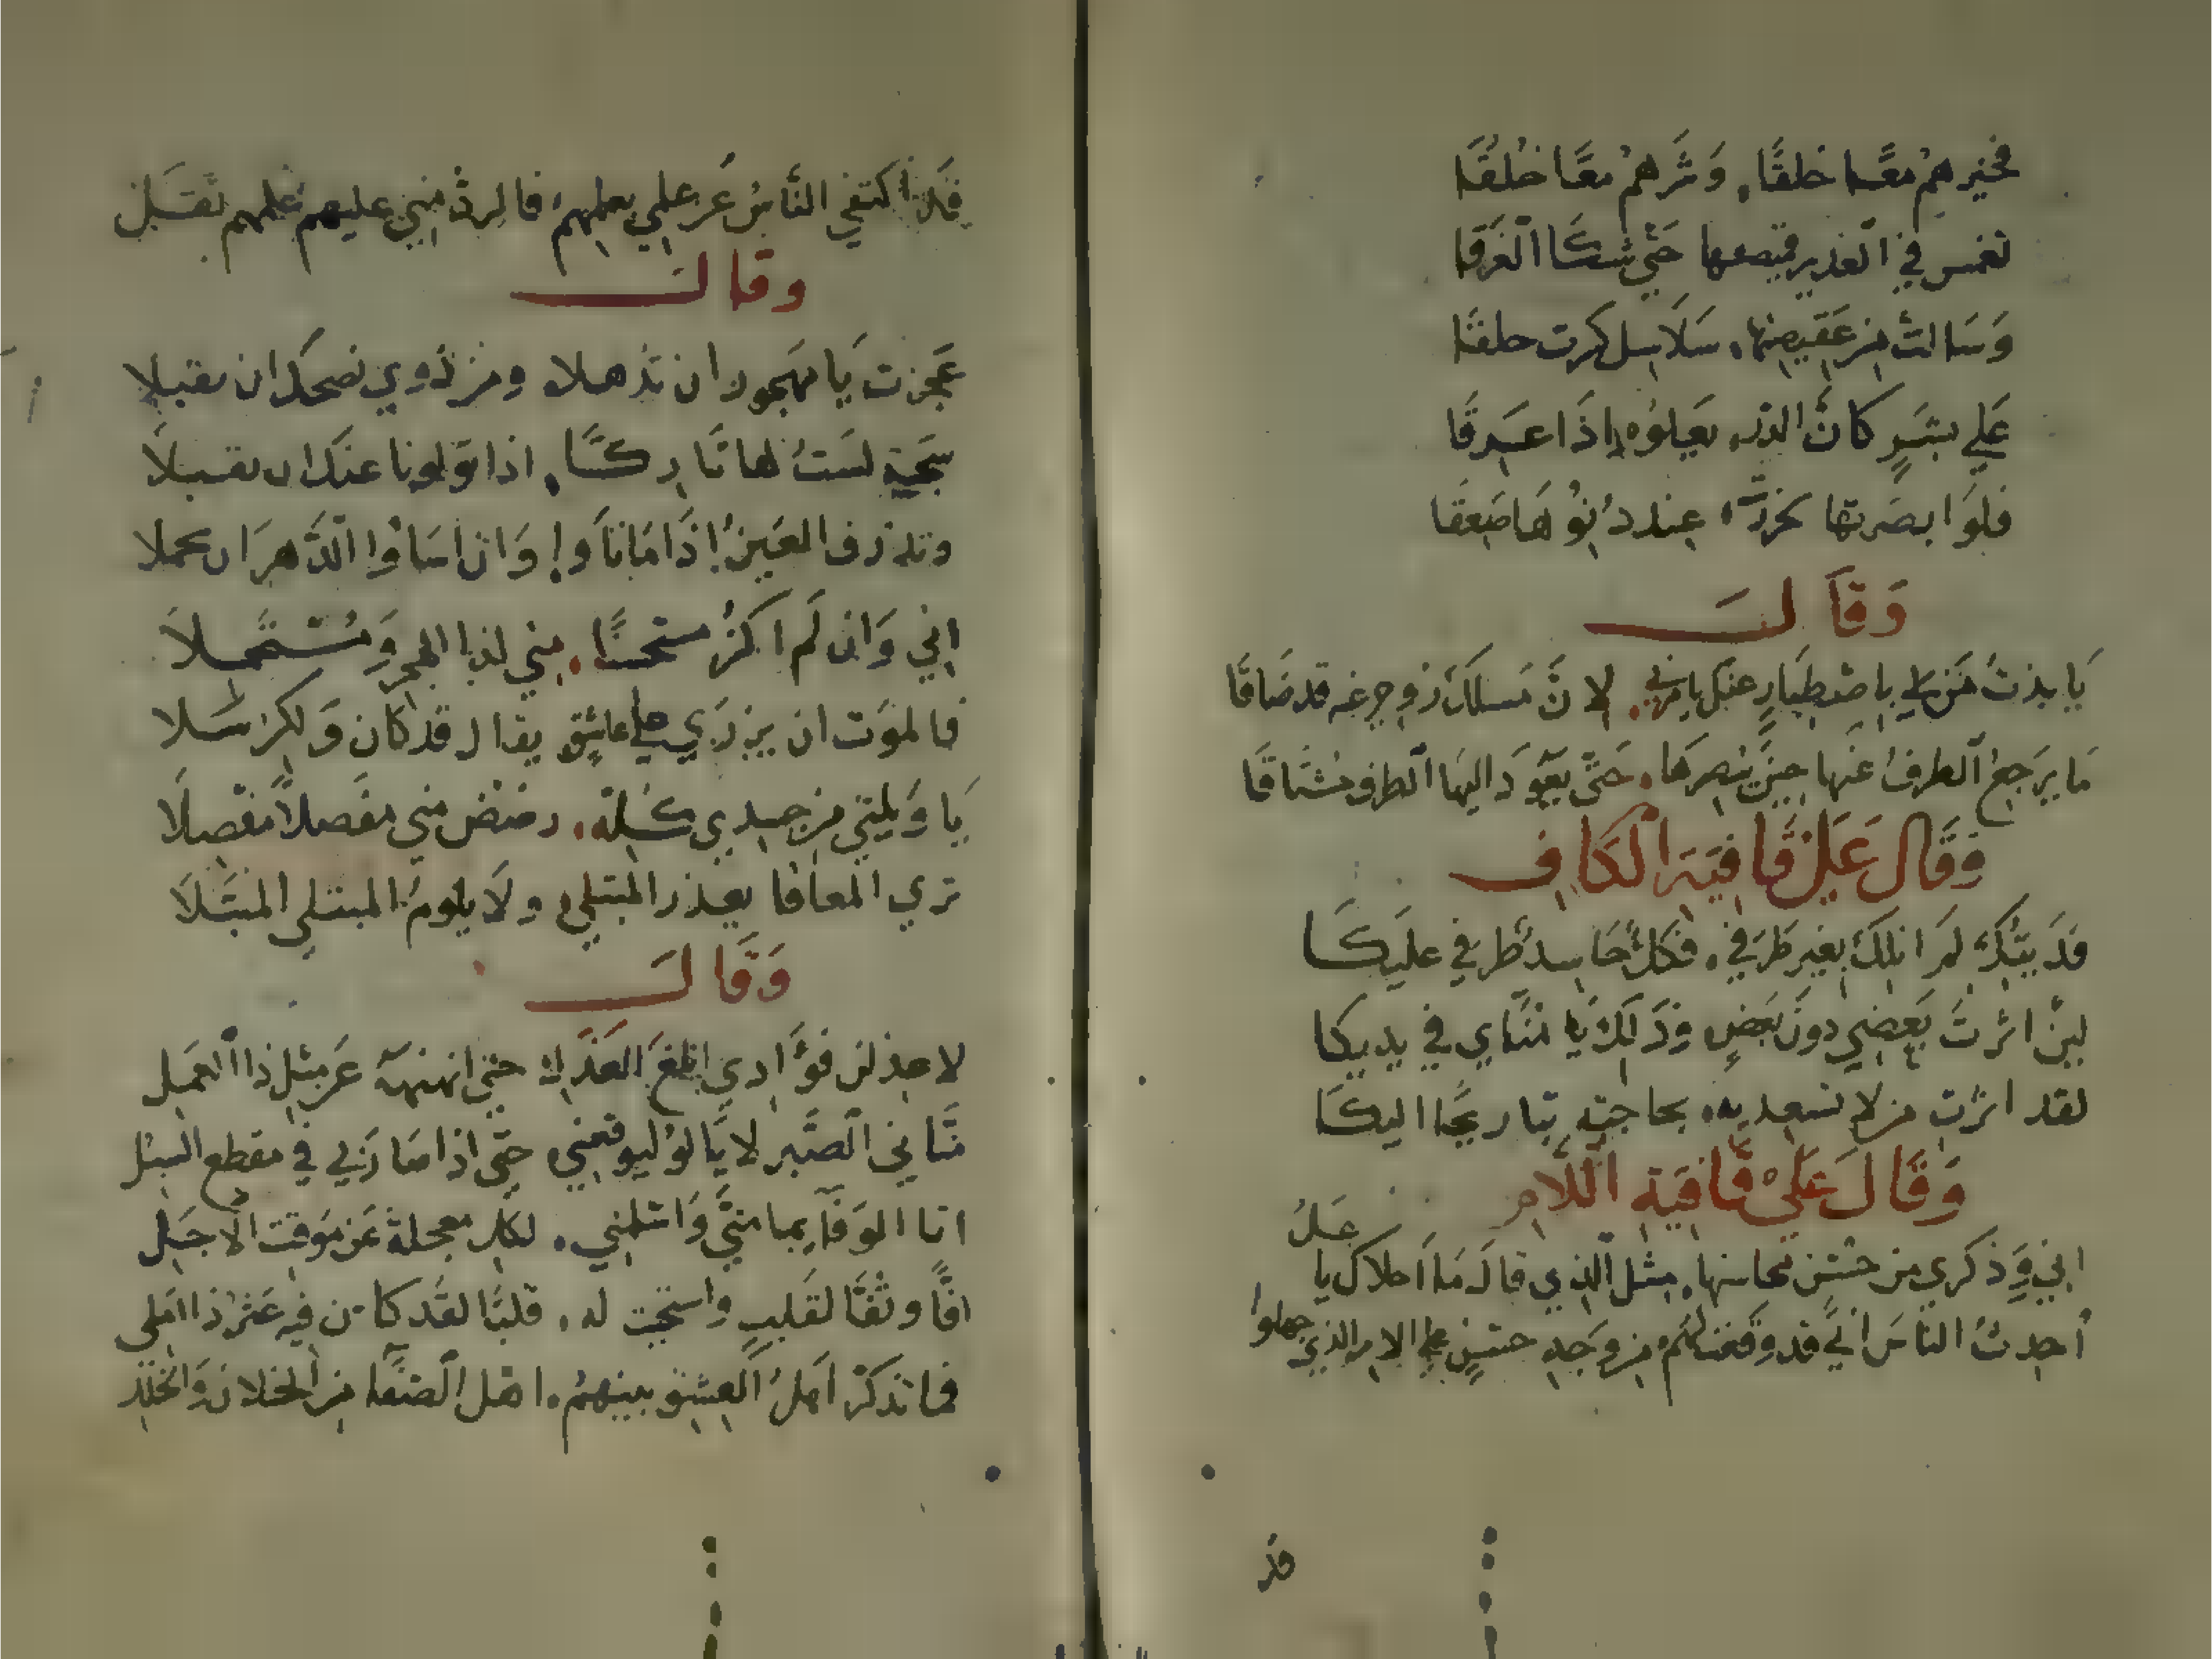 فخيرهم معًا خلقًا، وَشَرهمُ معًا خُلُقَا
تغمس في الغدير قميصها حَتي شكَا الغَرَقا
وَسَالتْ مِن عَقيصتها، سَلَاسِل كرت حلقَا
عَلي بشَرٍ كانَّ الدّر، يَعلوُه إذَا عَرقَا
فلوَ ابصَرتها عِند دُنوُهَا صَعقَا
وَقاَلَ
يَا بذتُ مَن لي باِصْطِبَارٍ عنكِ لانَّ مَسلكَ رُوحي عنه قد ضَاقَا
مَا يرَجعُ الطرفُ عَنها حِينَ يبُصِرهَا، حَتّى يعَودَ اليهَا الطرف مُشتَاقَا
وَقَال عَلي قَافيَة الَكاف
قدَ لمَ انلِكَ بغير طَرَفي، فكلٌ حَاسِد طَرفي عليَكَا
لين اثرتَ بَعضِي دونَ بَعَضٍ وَذَلِكَ يَا مُنَاي في يديكا
لقد اثرت من لا تسعديه، بحاجته تبَاريحًا اليكَا
وَقَالَ عَليْ قَافيَة اللَامِ
اني وَذكري من حُسْن محاسنها، مثل الذي قالَ مَا اَحلاك يا عَسَلُ
اَحدثُ الناسَ انيّ قد وَقَعت لهَمُ من وَجدِ على الامر الذي جهلوا
قد
فلذا اكتفي النَّاسُ عَن علمي بعلمهم، فالرد مني عليهم علمهم بقَبَل
وقال
عَجزت يَا مهَجور ان تذهلا ومن ذوي نصحك ان تقبلا
سَجية لسَتُ لها تَاركًا، اذا توَلونا عنك ان تقبلَا
وتذرف العَين إذَا مَا نَأوا وَان اسَاؤا الدَّهرَ ان تحملا
اني وَان لَم اكنُ مستحسنًا، مني لهذا الهجر وَ مُستجملَا
فالموَت ان يزرَي علي عاشق يقال قد كان وَلكن سَلا
يَا وَيلتي من جسدي كلّه، رضض مني مفَصلاً مفَصلَا
تري المعافا يعذر المبتلي، ولَا يلومُ المبتلي المبتَلَا
وَقَالَ
لا عِذلن فؤَادي ابلغَ العَذَل حتي انهنهه عَن مِثلِ ذا العَمِل
مَنّاني الصَّبر لا يَالوُ ليوقعني، حَتّي اذا صَارَ بي في مقطع السُبل
اتا الوَفَا بما منّي وَاسْلمني، لكل معجلة عَن موَقت الاجَلِ
افًّا وتُفًّا لقَلبٍ واستجت له، قلبًا لقَد كانَ فيهِ عَثرُ ذا املي
فما تذكرَ اَهلُ العِشق بينهمُ، اهل الصَّفَا مِن الخلان وَالخلَلِ